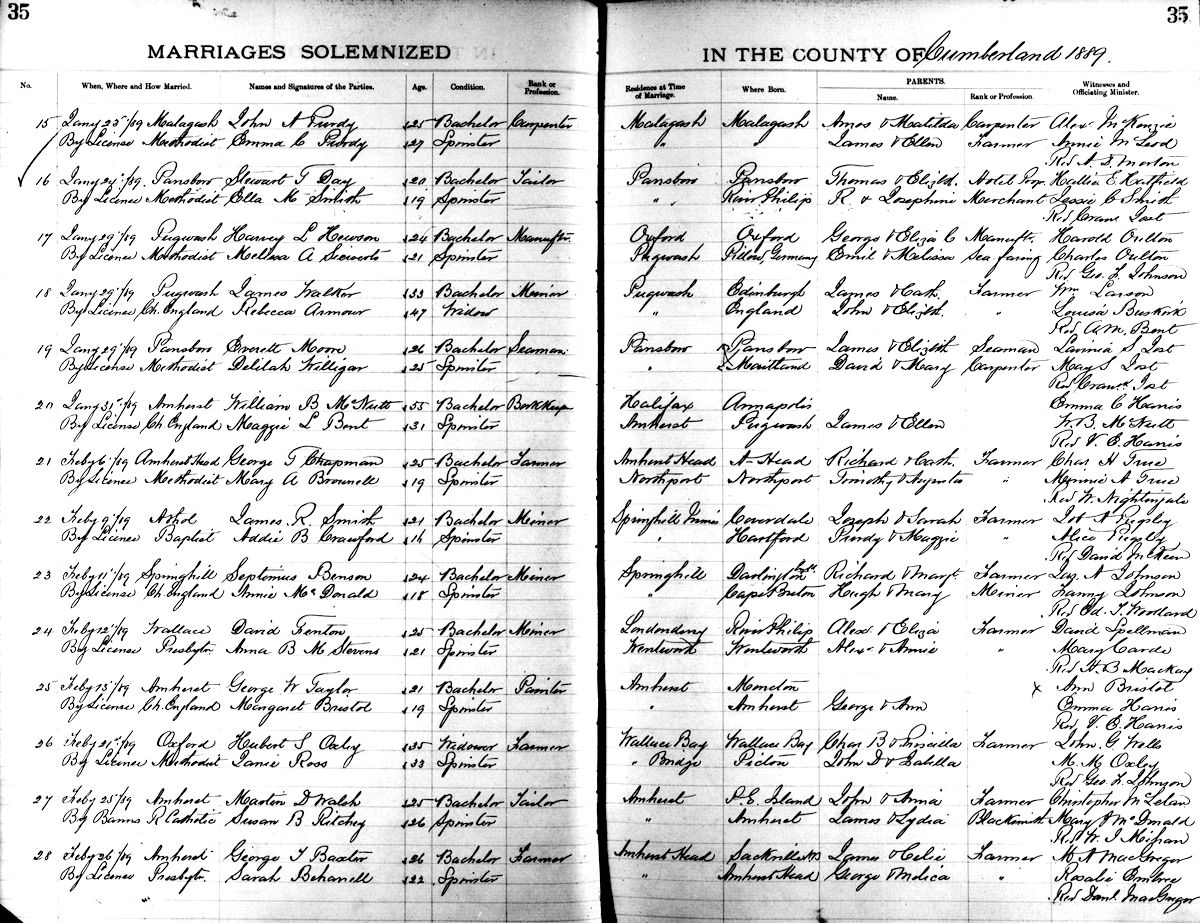 35
35
MARRIAGES SOLEMNIZED IN THE COUNTY OF Cumberland 1889.
No. When, Where and How Married. Names and Signatures of the Parties. Age. Condition. Rank or Profession. Residence at Time of Marriage. Where Born. PARENTS. Name. Rank or Profession. Witnesses and Officiating Minister.
15 Jany 23rd/89 Malagash John A Purdy 25 Bachelor Carpenter Malagash Malagash Amos & Matilda Carpenter Alex. McKenzie
By License Methodist Emma C Purdy 27 Spinster " " James & Ellen Farmer Annie McLeod
Revd A. D. Morton
16 Jany 24/89 Parrsboro Stewart T Day 20 Bachelor Tailor Parrsboro Parrsboro Thomas & Elizbth. Hotel Prop. Hallie E Hatfield
By License Methodist Ella M Smith 19 Spinster " River Philip R. & Josephine Merchant Jessie C Smith
Revd Crans Jost
17 Jany 29/89 Pugwash Harvey L Hewson 24 Bachelor Manuftr. Oxford Oxford George & Eliza C Manuftr. Harold Oulton
By License Methodist Melissa A 21 Spinster Pugwash Germany Emil & Melissa Sea faring Charles Oulton
Revd Geo. F. Johnson
18 Jany 29/89 Pugwash James Walker 33 Bachelor Miner Pugwash Edinburgh James & Cath. Farmer Wm Larson
By License Ch. England Rebecca Armour 47 Widow " England John & Elizbth. " Louisa Buskirk
Revd A.M. Bent
19 Jany 29/89 Parrsboro Everett Moore 26 Bachelor Seaman Parrsboro Parrsboro James & Elizbth Seaman Lavinia S Jost
By License Methodist Delilah Willigar 25 Spinster " Maitland David & Mary Carpenter May S Jost
Revd Cranswk Jost
20 Jany 31st/89 Amherst William B McNutt 55 Bachelor Bookkeeper Halifax Annapolis Emma C Harris
By License Ch England Maggie L Bent 31 Spinster Amherst Pugwash James & Ellen W. B. McNutt
Revd V. E. Harris
21 Feby 6/89 Amherst Head George T Chapman 25 Bachelor Farmer Amherst Head A- Head Richard & Cath. Farmer Chas H True
By License Methodist Mary A Brownell 19 Spinster Northport Northport Timothy & Augusta " Minnie A True
Revd W. Nightingale
22 Feby 9/89 Athol James R. Smith 21 Bachelor Miner Springhill Mines Coverdale Joseph & Sarah Farmer Job A Pugsley
By License Baptist Addie B Crawford 16 Spinster " Hartford Purdy & Maggie " Alice Pugsley
Revd David McKeen
23 Feby 11/89 Springhill Septimus Benson 24 Bachelor Miner Springhill Darlington Richard & Margt. Farmer Jas. A Johnson
By License Ch. England Annie McDonald 18 Spinster " Cape Breton Hugh & Mary Miner Fanny Johnson
Revd Ed. T. Woodland
24 Feby 12/89 Wallace David Fenton 25 Bachelor Miner Londonderry River Philip Alex & Eliza Farmer David Spellman
By License Presbytn. Anna B M Stevens 21 Spinster Wentworth Wentworth Alexr & Annie " Mary Carde
Revd H. B MacKay
25 Feby 13/89 Amherst George W Taylor 21 Bachelor Painter Amherst X Ann Bristol
By License Ch. England Margaret Bristol 19 Spinster " Amherst George & Ann Emma Harris
Revd V. E. Harris
26 Feby 21st/89 Oxford Hubert S Oxley 35 Widower Farmer Wallace Bay Wallace Bay Chas B & Priscilla Farmer John G Wells
By License Methodist Janie Ross 33 Spinster " Bridge Pictou John D & Isabella M. M Oxley
Revd Geo. F. Johnson
27 Feby 25/89 Amherst Martin D Walsh 25 Bachelor Tailor Amherst P. E. Island John & Annia Farmer Christopher McLelan
By Banns R. Catholic Susan B Ritchey 26 Spinster " Amherst James & Lydia Blacksmith Mary J McDonald
Revd W. J.
28 Feby 26/89 Amherst George T Baxter 26 Bachelor Farmer Amherst Head Sackville NB James & Celie Farmer M A MacGregor
By License Presbytn. Sarah Behanell 22 Spinster " Amherst Head George & Melica " Rosalie Embree
Revd Danl. MacGregor